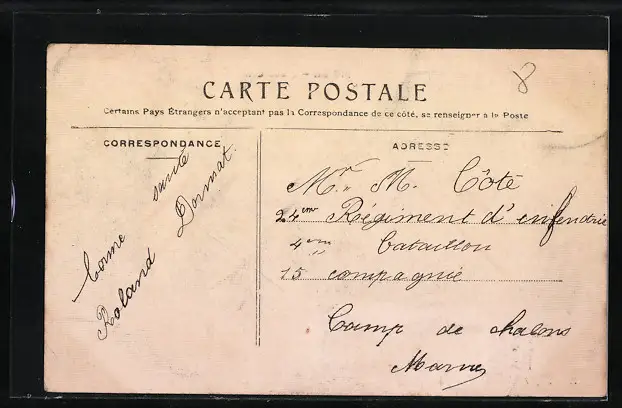 8
CARTE POSTALE
Certains Pays Étrangers n'acceptant pas la Correspondance de ce côté, se renseigner à la Poste
CORRESPONDANCE
bonne santé
Roland Dormat.
ADRESSE
Mr. M. Côté
24em Régiment d'enfendrie
4em bataillon
15 compagnie
Camp de chalons
Marne